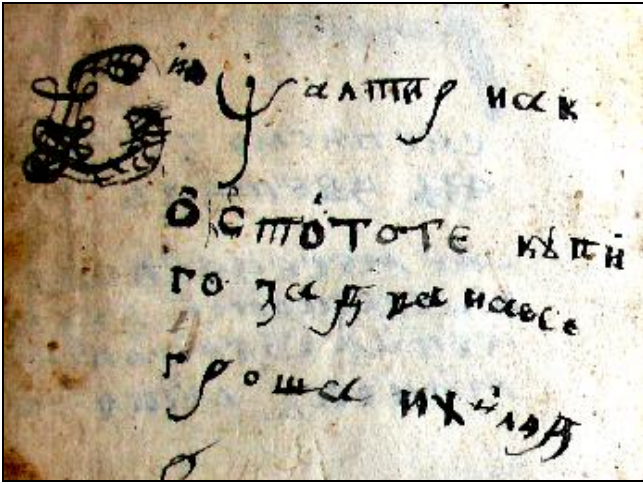 Сию ѱалтир нак
о стототе кꙋпи
го за дванаесе
гроша ихиляд